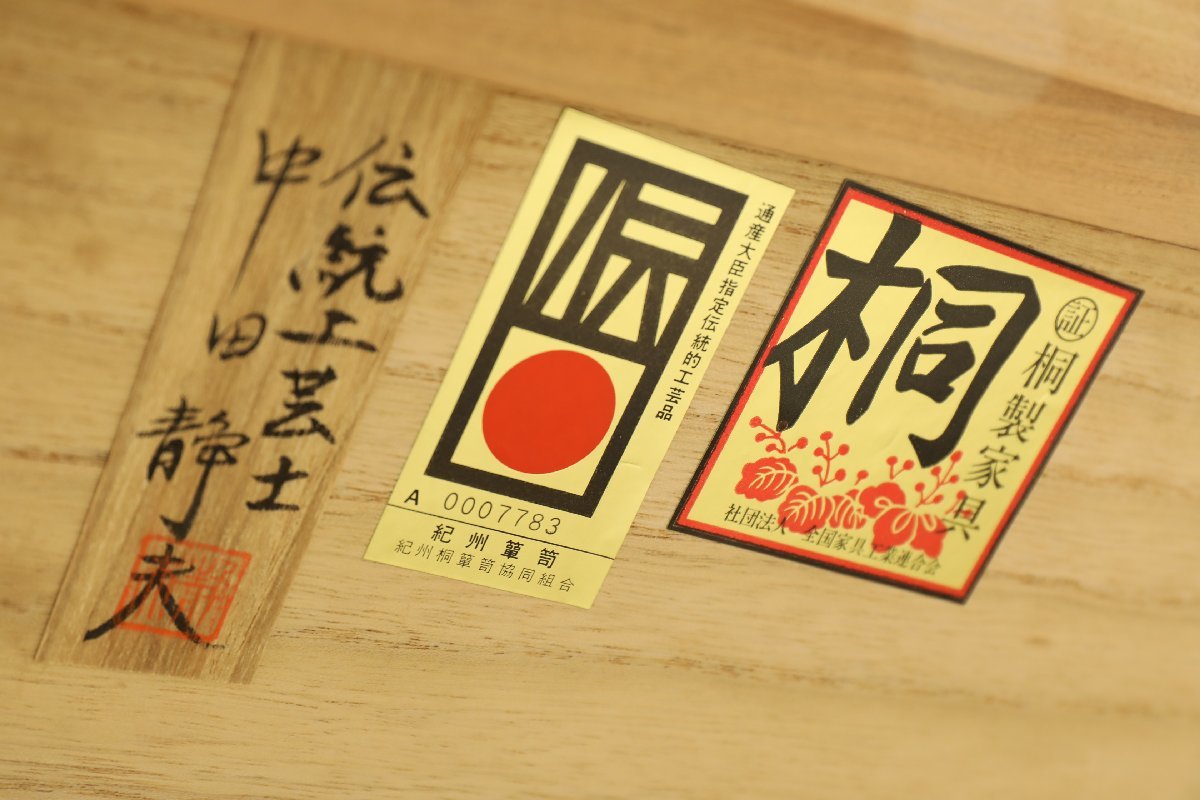 伝統工芸士
中田静夫
伝
通産大臣指定伝統的工芸品
A 0007783
紀州簞笥
紀州桐簞笥協同組合
桐
証 桐製家具
社団法人 全国家具工業連合会